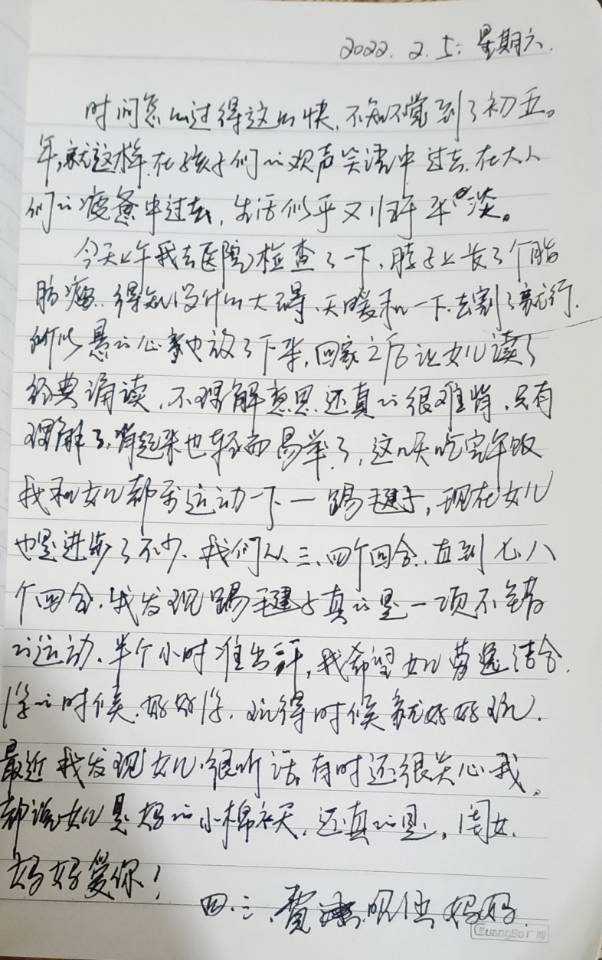 2022. 2. 5. 星期六.
时间怎么过得这么快,不知不觉到了初五。
年,就这样,在孩子们的欢声笑语中过去,在大人
们的疲惫中过去,生活似乎又归于平淡。
今天上午我去医院检查了一下,脖子上长了个脂
肪瘤.得知没什么大碍,天暖和一下,去割了就行.
所以悬的心也放了下来,回家之后让女儿读了
经典诵读,不理解意思,还真的很难背,只有
理解了,背起来也轻而易举了,这几天吃完午饭
我和女儿都要运动一下—踢毽子,现在女儿
也是进步了不少.我们从三、四个回合,直到七八
个回合,我发现踢毽子真的是一项不错
的运动.半个小时准出汗,我希望女儿劳逸结合.
学的时候,好好学.玩得时候就好好玩.
最近我发现女儿很听话,有时还很关心我,
都说女儿是妈的小棉袄,还真的是,闺女.
妈妈爱你!
四.二 贾 妈妈
GuangBo 广博